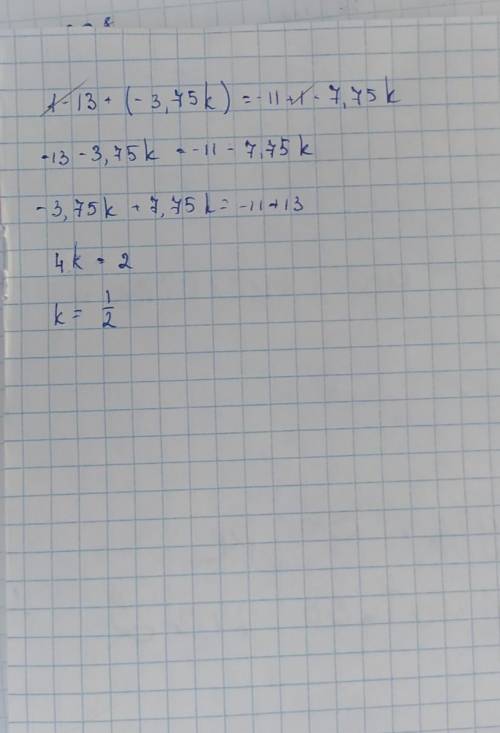 1 - 13 + (- 3,75k) = -11 + 1 - 7,75k
-13 - 3,75k = -11 - 7,75k
- 3,75k + 7,75k = -11 + 13
4k = 2
k = 1/2